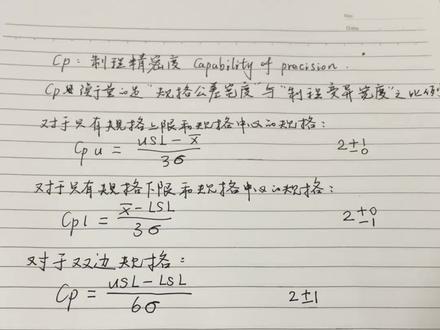 Cp：制程精密度 Capability of precision.
Cp是衡量的是"规格公差宽度"与"制程变异宽度"之比例
对于只有规格上限和规格中心的规格：
Cpu = (USL - x̄) / 3σ 2 +1 -0
对于只有规格下限和规格中心的规格：
Cpl = (x̄ - LSL) / 3σ 2 +0 -1
对于双边规格：
Cp = (USL - LSL) / 6σ 2±1